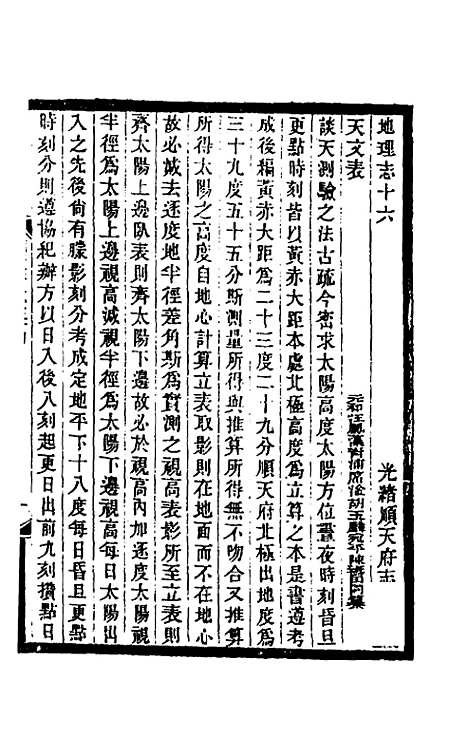 地理志十六 光緒順天府志
天文表
談天測驗之法古疏今密求太陽高度太陽方位晝夜時刻昏旦
更點時刻皆以黃赤大距本處北極高度為立算之本是書遵考
成後編黃赤大距為二十三度二十九分順天府北極出地度為
三十九度五十五分斯測量所得與推算所得無不吻合又推算
所得太陽之高度自地心計算立表取影則在地面而不在地心
故必減去逐度地半徑差角斯為實測之視高度所至立表則
齊太陽上邊臥表則齊太陽下邊故必於視高內加逐度太陽視
半徑為太陽上邊視高減視半徑為太陽下邊視高每日太陽出
入之先後尙有朦影刻分考成定地平下十八度每日昏旦更點
時刻分則遵協紀辦方以日入後八刻起更日出前九刻攢點日